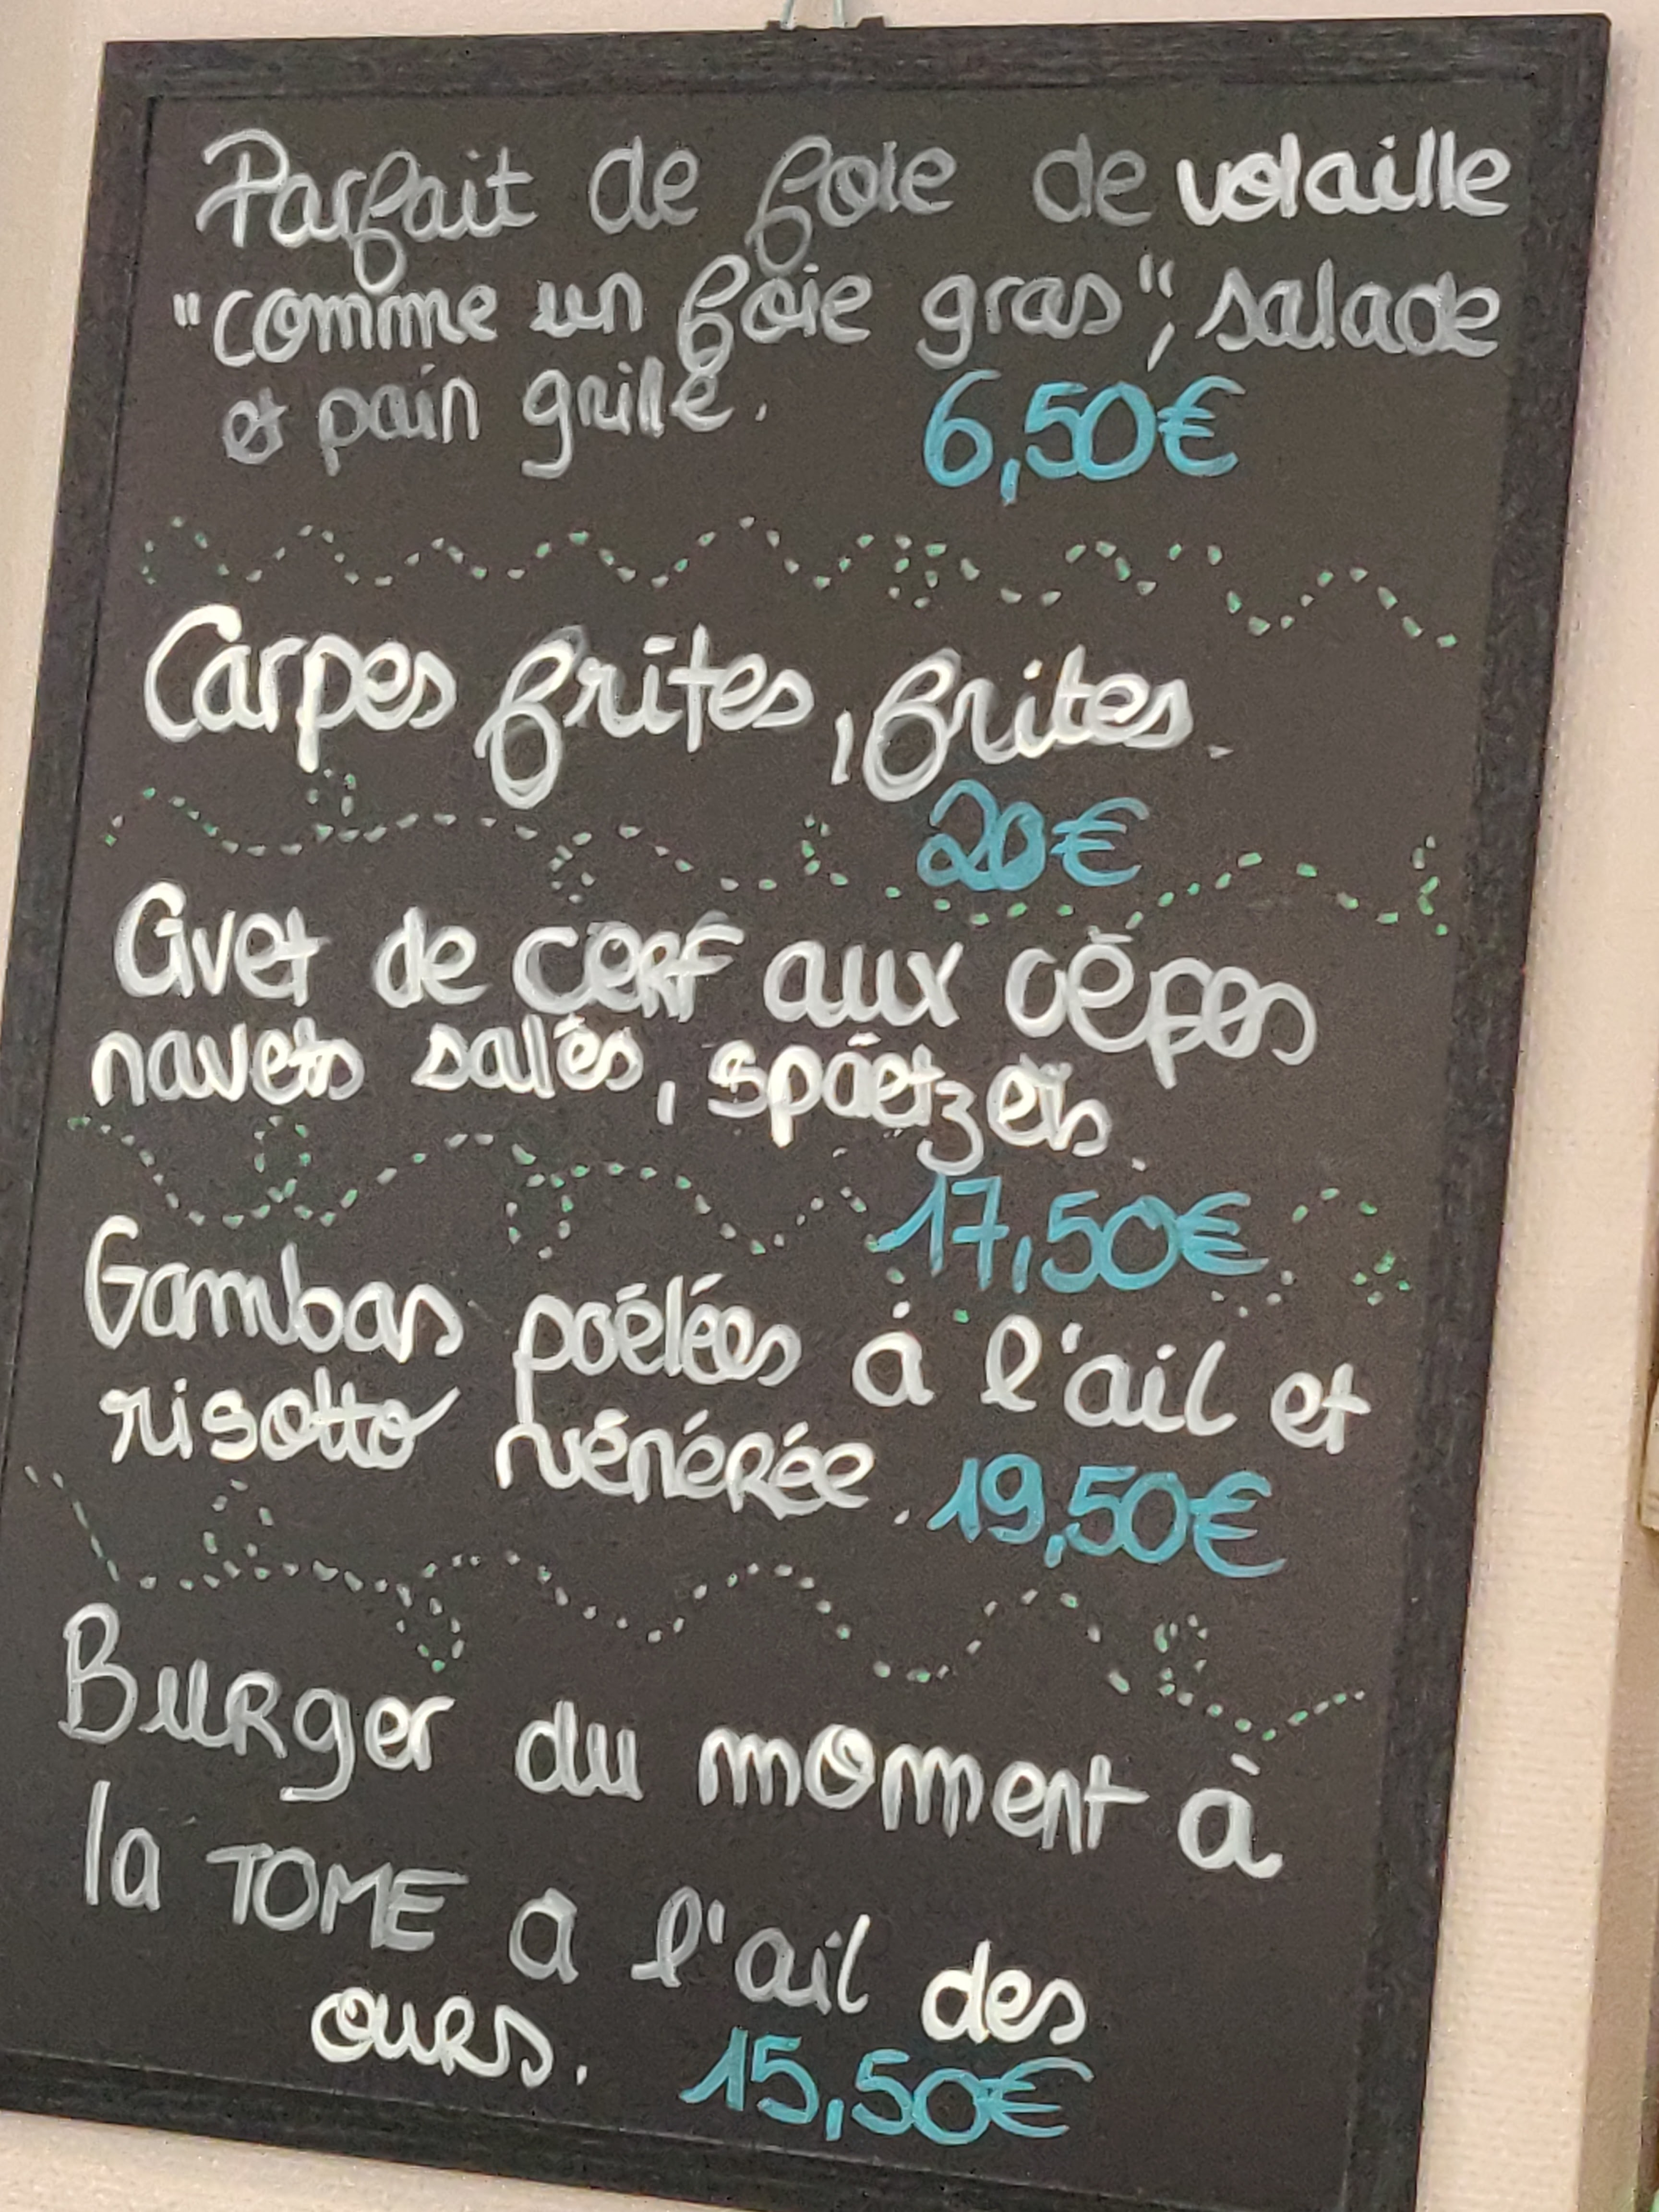 Parfait de foie de volaille
"comme un foie gras", salade
et pain grillé. 6,50€
Carpes frites, frites.
20€
Civet de cerf aux cèpes
navets salés, spaëtzeis.
17,50€
Gambas poêlées à l'ail et
risotto vénérée. 19,50€
Burger du moment à
la TOME a l'ail des
ours. 15,50€